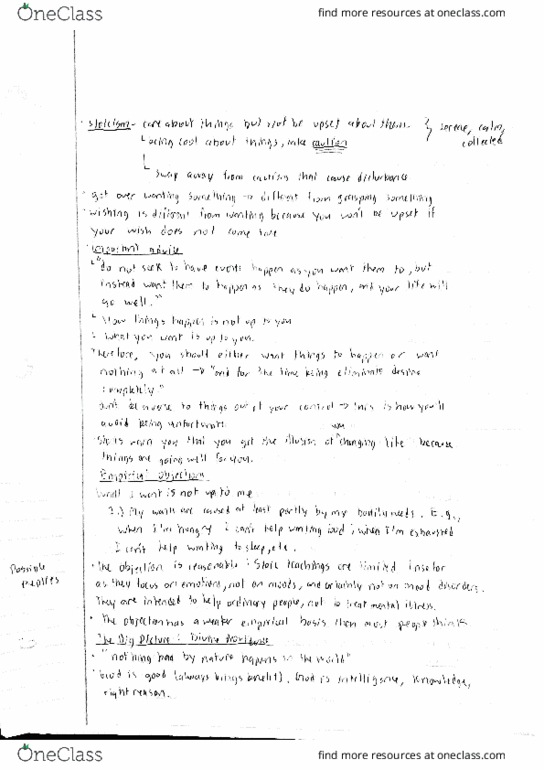 OneClass
find more resources at oneclass.com
· stoicism - care about things but not be upset about them. } serene, calm, collected
being cool about things, take caution
away from that cause disturbance
· get over wanting something → different from grasping something
· wishing is different from wanting because you won't be upset if
your wish does not come true
advise
"do not seek to have events happen as you want them to, but
instead want them to happen as they do happen, and your life will
go well."
How things happen is not up to you
What you want is up to you.
Therefore, you should either want things to happen or want
nothing at all → "and for the time being eliminate desire
completely."
to things out of your control → this is how you'll
avoid being unfortunate.
you that you get the illusion of "changing life" because
things are going well for you.
Empirical Objection
I want is not up to me
2.) My wants are caused at least partly by my bodily needs. E.g.,
when I'm hungry I can't help wanting food; when I'm exhausted
I can't help wanting to sleep, etc.
Possible replies
· The objection is reasonable: Stoic teachings are limited insofar
as they focus on emotions, not on moods, and certainly not on mood disorders.
They are intended to help ordinary people, not to treat mental illness.
· The objection has a weaker empirical basis than most people think
The Big Picture: Divine Providence
· "nothing bad by nature happens in the world"
· God is good (always brings benefit). God is intelligence, knowledge,
right reason.
OneClass
find more resources at oneclass.com